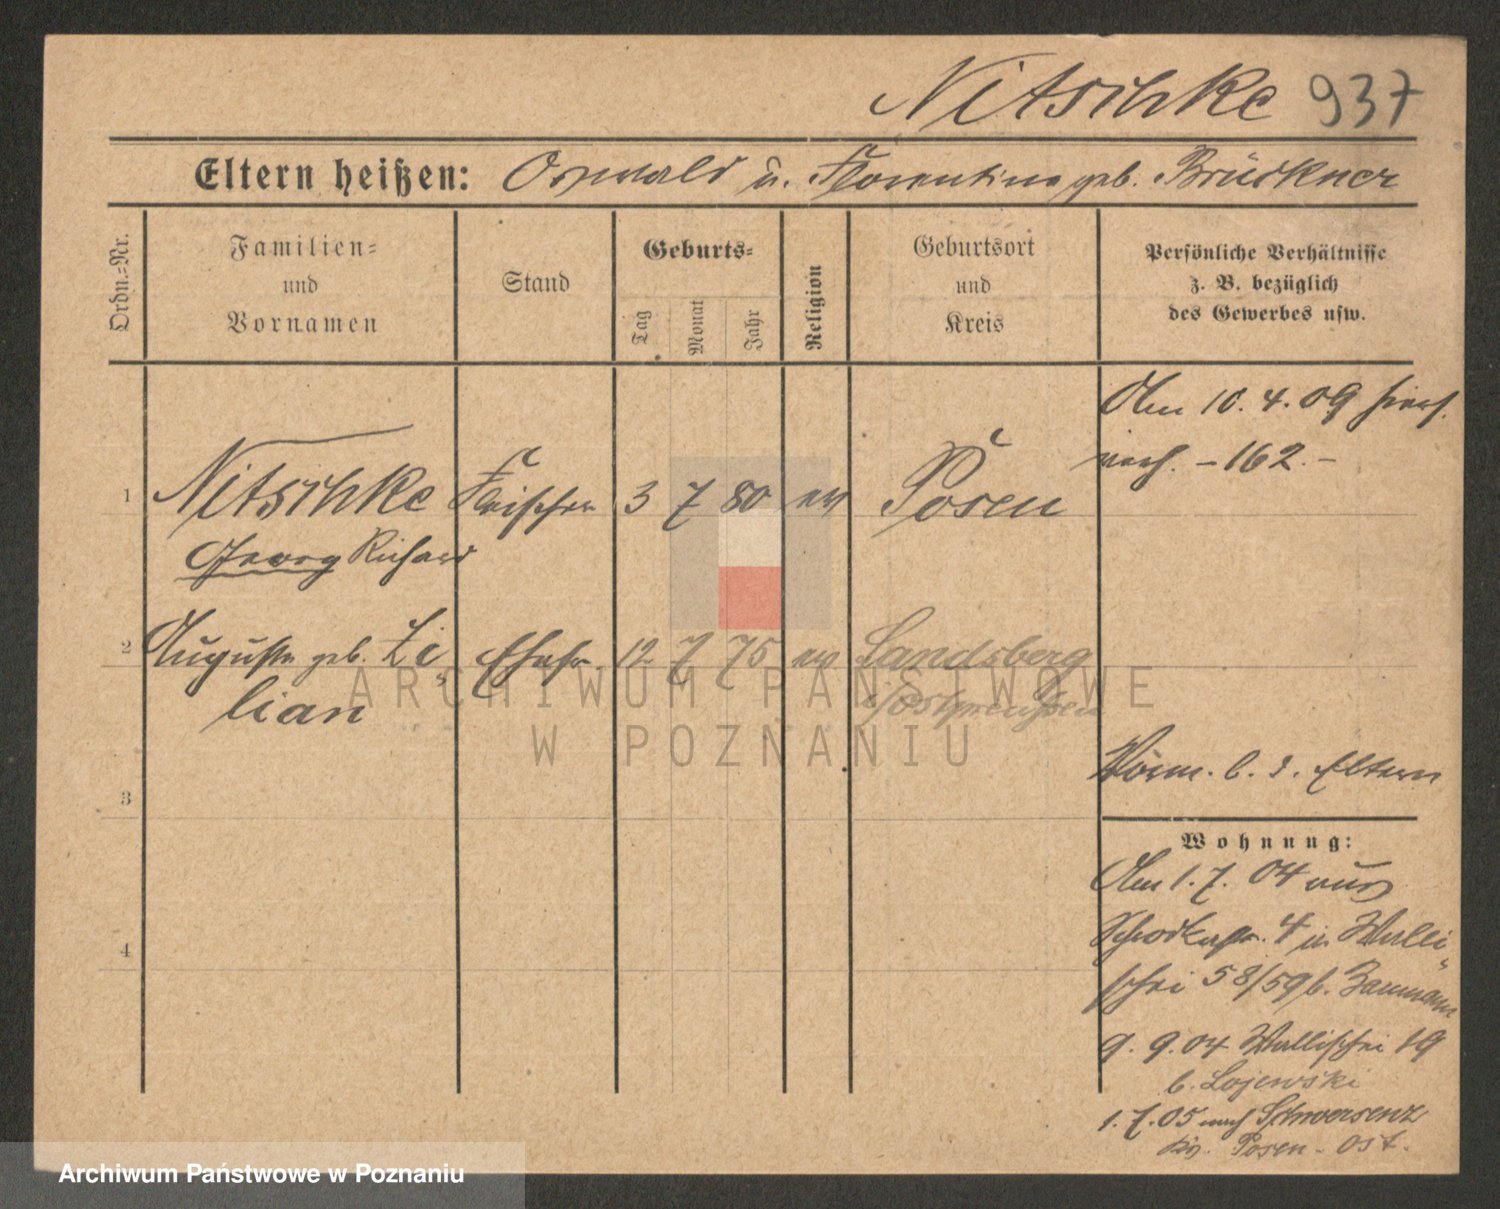 Nitschke 937
Eltern heißen: Oswald u. Florentine geb. Brückner
Ordn.=Nr.
Familien=
und
Vornamen
Stand
Geburts=
Tag
Monat
Jahr
Religion
Geburtsort
und
Kreis
Persönliche Verhältnisse
z. B. bezüglich
des Gewerbes usw.
Am 10. 4. 09
verh. – 162. –
1 Nitschke Fleischer 3 7 80 ev Posen
Georg Richard
2 Auguste geb. Li- Ehefr. 12 7 75 ev Landsberg
lian i/Ostpreußen
Vorm. b. d. Eltern
3
Wohnung:
Am 1. 7. 04 aus
Schrodkastr. 4 in Walli-
4
schei 58/59 b. Baumann
9. 9. 04 Wallischei 19
b. Lojewski
1. 7. 05 nach Schwersenz
Posen-Ost.
ARCHIWUM PAŃSTWOWE
W POZNANIU
Archiwum Państwowe w Poznaniu